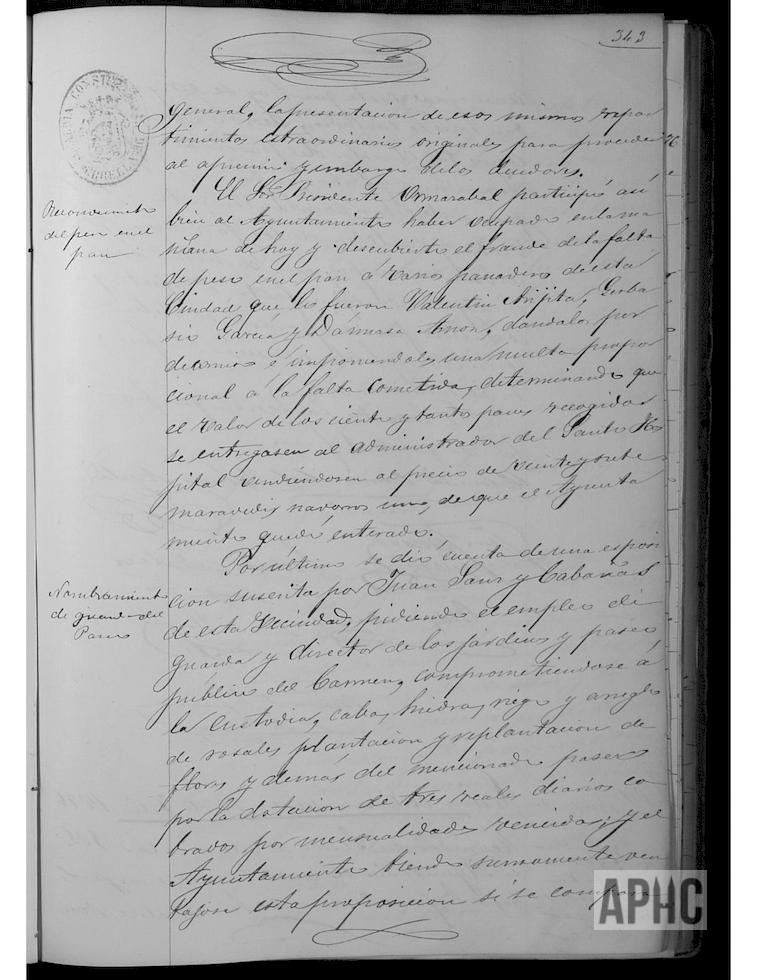 343
general, la presentacion de esos mismos repar
timientos estraordinarios originales para proceder
al apremio y embargo de los deudores.
Reconocimiento
del peso en el
pan
El Sor. Presidente Ormazabal participó asi
bien al Ayuntamiento haber ocupado en la ma
ñana de hoy y descubierto el fraude de la falta
de peso en el pan á varios panaderos de esta
Ciudad que lo fueron Valentin Arjita, Gerba
sio Garcia y Dámaso Anon, dandolas por
decomiso é imponiendoles una multa propor
cional á la falta cometida, determinando que
el valor de los ciento y tantos panes recogidos
se entregasen al administrador del Santo Hos
pital vendiendosen al precio de veinte y siete
maravedis navarros uno, de que el Ayunta
miento quedó enterado.
Nombramiento
de guarda del
Paseo
Por último se dió cuenta de una esposi
cion suscrita por Juan Sanz y Cabañas
de esta Vecindad, pidiendo el empleo de
guarda y director de los jardines y paseo
público del Carmen, comprometiendose á
la custodia, caba, hiedra, riego y arreglo
de rosales plantacion y replantacion de
flores y demás del mencionado paseo
por la dotacion de tres reales diarios co
brados por mensualidades vencidas; y el
Ayuntamiento biendo sumamente ven
tajosa esta proposicion si se compara
APHC